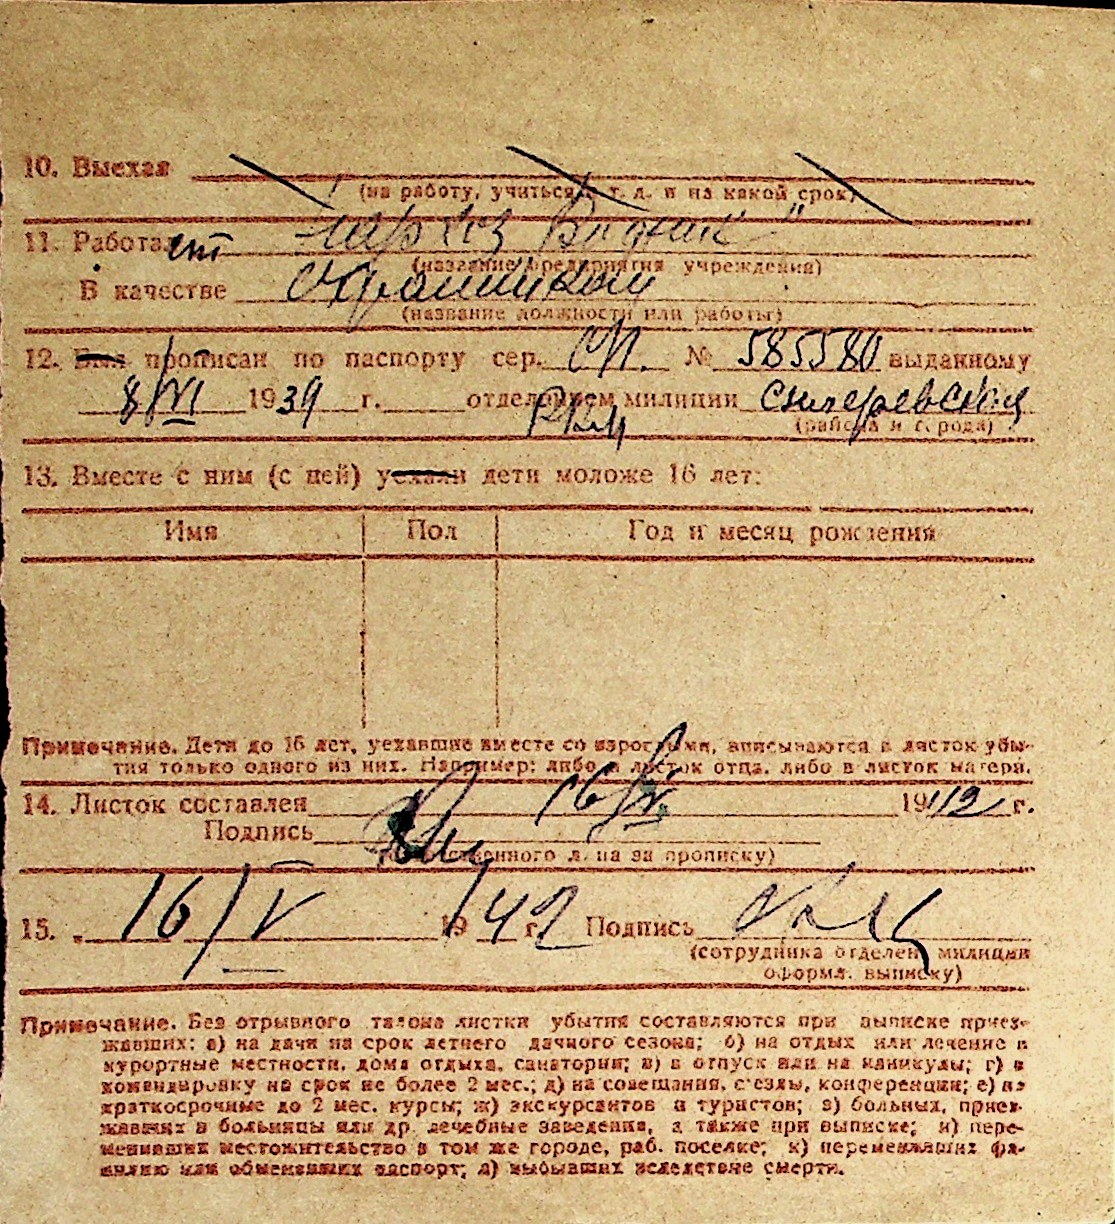 10. Выехал
(на работу, учиться, т. д. и на какой срок)
11. Работает
(название предприятия учреждения)
В качестве
(название должности или работы)
12. Был прописан по паспорту сер. СП. № 585580 выданному
8/VI 1939 г. отделением милиции
РКМ
(района и города)
13. Вместе с ним (с ней) уехали дети моложе 16 лет:
Имя Пол Год и месяц рождения
Примечание. Дети до 16 лет, уехавшие вместе со взрослыми, вписываются в листок убы-
тия только одного из них. Например: либо в листок отца, либо в листок матери.
14. Листок составлен 16/V 1942 г.
Подпись
(ответственного лица за прописку)
15. „ 16/V 1942 г. Подпись
(сотрудника отделен. милиции
оформл. выписку)
Примечание. Без отрывного талона листки убытия составляются при выписке приез-
жавших: а) на дачи на срок летнего дачного сезона; б) на отдых или лечение в
курортные местности, дома отдыха, санатории; в) в отпуск или на каникулы; г) в
командировку на срок не более 2 мес.; д) на совещания, с'езды, конференции; е) на
краткосрочные до 2 мес. курсы; ж) экскурсантов и туристов; з) больных, приез-
жавших в больницы или др. лечебные заведения, а также при выписке; и) пере-
менивших местожительство в том же городе, раб. поселке; к) переменивших фа-
милию или обменявших паспорт; л) выбывших вследствие смерти.